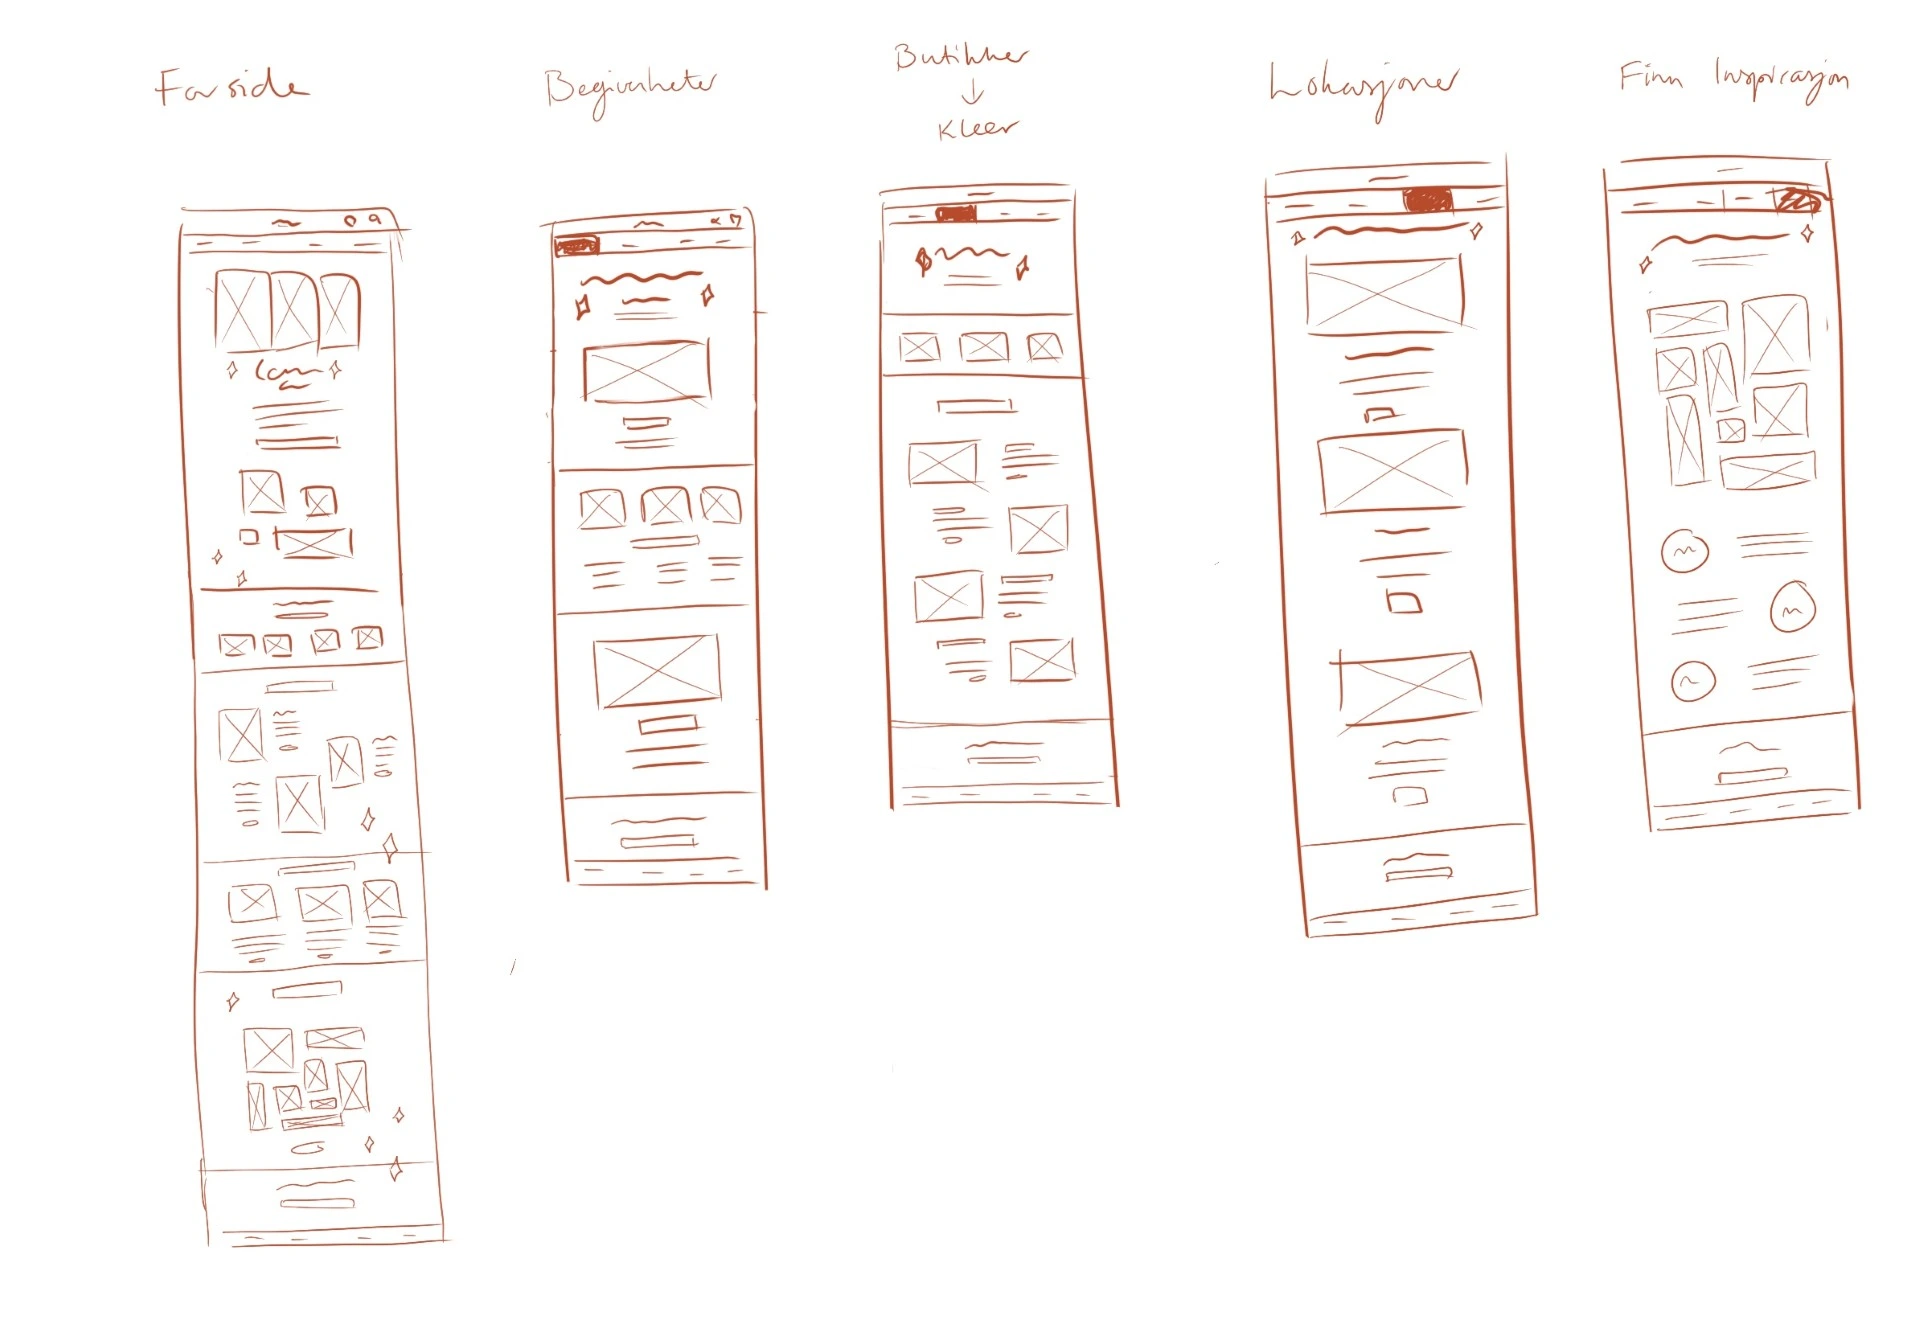 Forside
Begivenheter
Butikker
↓
Kleer
Lokasjoner
Finn Inspirasjon